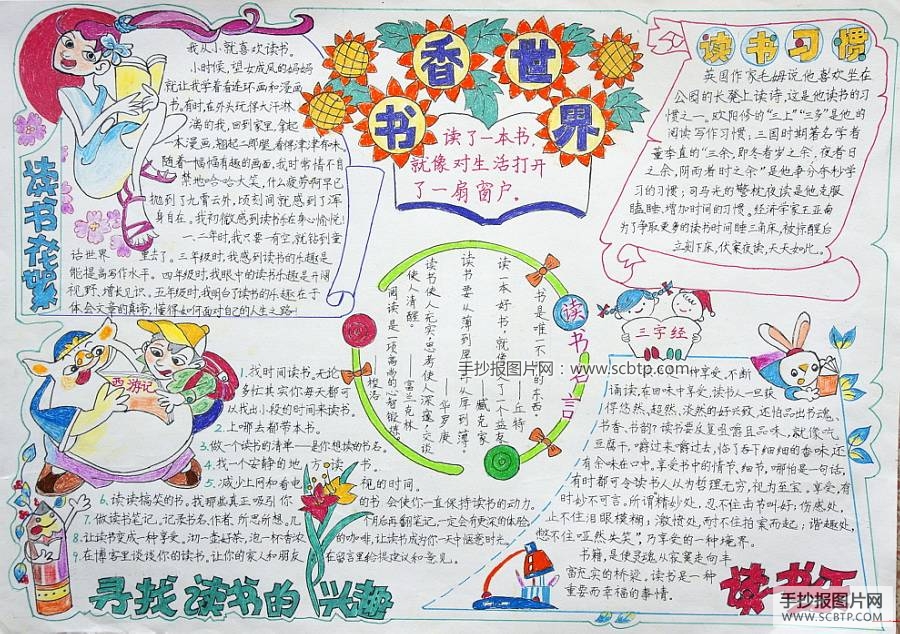 书香世界
读了一本书，
就像对生活打开
了一扇窗户。
我从小就喜欢读书。
小时候，望女成凤的妈妈
就让我学着看连环画和漫画
书。有时，在外头玩得大汗淋
漓的我，回到家里，拿起
一本漫画，翘起二郎腿，看得津津有味，
随着一幅幅有趣的画面，我时常情不自
禁地哈哈大笑，什么疲劳啊早已
抛到了九霄云外，顷刻间就感到了浑
身自在。我初微感到读书乐在身心愉悦！
一、二年时，我只要一有空，就钻到童
话世界里去了。三年级时，我感到读书的乐趣是
能提高写作水平。四年级时，我眼中的读书乐趣是开阔
视野，增长见识。五年级时，我明白了读书的乐趣在于
体会文章的真谛，懂得如何面对自己的人生之路！
读书
读书习惯
英国作家毛姆说，他喜欢坐在
公园的长凳上读诗，这是他读书的习
惯之一。欧阳修的“三上”“三多”是他的
阅读写作习惯，三国时期著名学者
董季直的“三余，即冬者岁之余，夜者日
之余，阴雨者时之余”是他争分夺秒学
习的习惯；司马光的警枕夜读是他克服
瞌睡，增加时间的习惯。经济学家王亚南
为了争取更多的读书时间睡三角床，被惊醒后
立刻下床，伏案夜读，天天如此。
读书名言
书是唯一不
的东西。
——丘特
读一本好书，就
了一个益友
——臧克家
读书要从薄到厚，再从厚到薄。
——华罗庚
读书使人充实，思考使人深邃，交谈
使人清醒。
——富兰克林
阅读是一项高尚的心智锻炼。
三字经
西游记
1、找时间读书。无论
多忙其实你每天都可
以找出小段的时间来读书。
2、上哪去都带本书。
3、做个读书的清单——是你想读的书名。
4、找一个安静的地方读书。
5、减少上网和看电视的时间。
6、读读搞笑的书。找那些真正吸引你的书会使你一直保持读书的动力。
7、做读书笔记。记录书名，作者，所思所想。几个月后再翻笔记，一定会有更深的体验。
8、让读书变成一种享受，沏一壶好茶，泡一杯香浓的咖啡，让读书成为你一天中惬意时光。
9、在博客里谈谈你的读书。让你的家人和朋友在留言里给提建议和意见。
寻找读书的兴趣
种享受，不断
诵读，在回味中享受，读书人一旦获
得悠然、超然、淡然的好兴致，还怕品出书魂、
书香、书韵？读书要反复咀嚼且品味，就像吃
豆腐干，嚼过来嚼过去，临了吞下细细的香味，还
有余味在口中。享受书中的情节、细节，哪怕是一句话，
有时都可令读书人以为哲理无穷，视为至宝。享受，有
时妙不可言。所谓精妙处，忍不住击节叫好；伤感处，
止不住泪眼模糊；激愤处，耐不住拍案而起；谐趣处，
憋不住“哑然失笑”，乃享受的一种境界。
书籍，是使灵魂从寂寞走向丰
富充实的桥梁，读书是一种
重要而幸福的事情。
读书
手抄报图片网
www.scbtp.com
手抄报图片网
WWW.SCBTP.COM